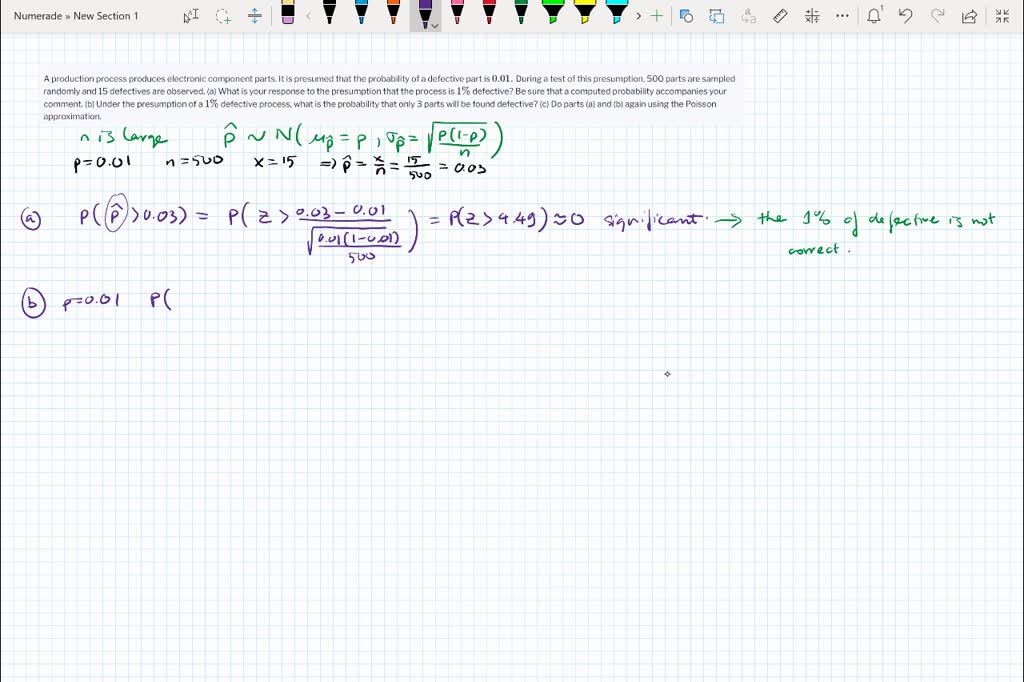 Numerade » New Section 1
A production process produces electronic component parts. It is presumed that the probability of a defective part is 0.01. During a test of this presumption, 500 parts are sampled
randomly and 15 defectives are observed. (a) What is your response to the presumption that the process is 1% defective? Be sure that a computed probability accompanies your
comment. (b) Under the presumption of a 1% defective process, what is the probability that only 3 parts will be found defective? (c) Do parts (a) and (b) again using the Poisson
approximation.
n is large p̂ ~ N( μp̂ = p , σp̂ = √(p(1-p)/n) )
p=0.01 n=500 x=15 => p̂ = x/n = 15/500 = 0.03
(a) P( p̂ > 0.03) = P( z > (0.03 - 0.01)/√(0.01(1-0.01)/500) ) = P(z > 4.49) ≈ 0 significant. → the 1% of defective is not
correct.
(b) p=0.01 P(